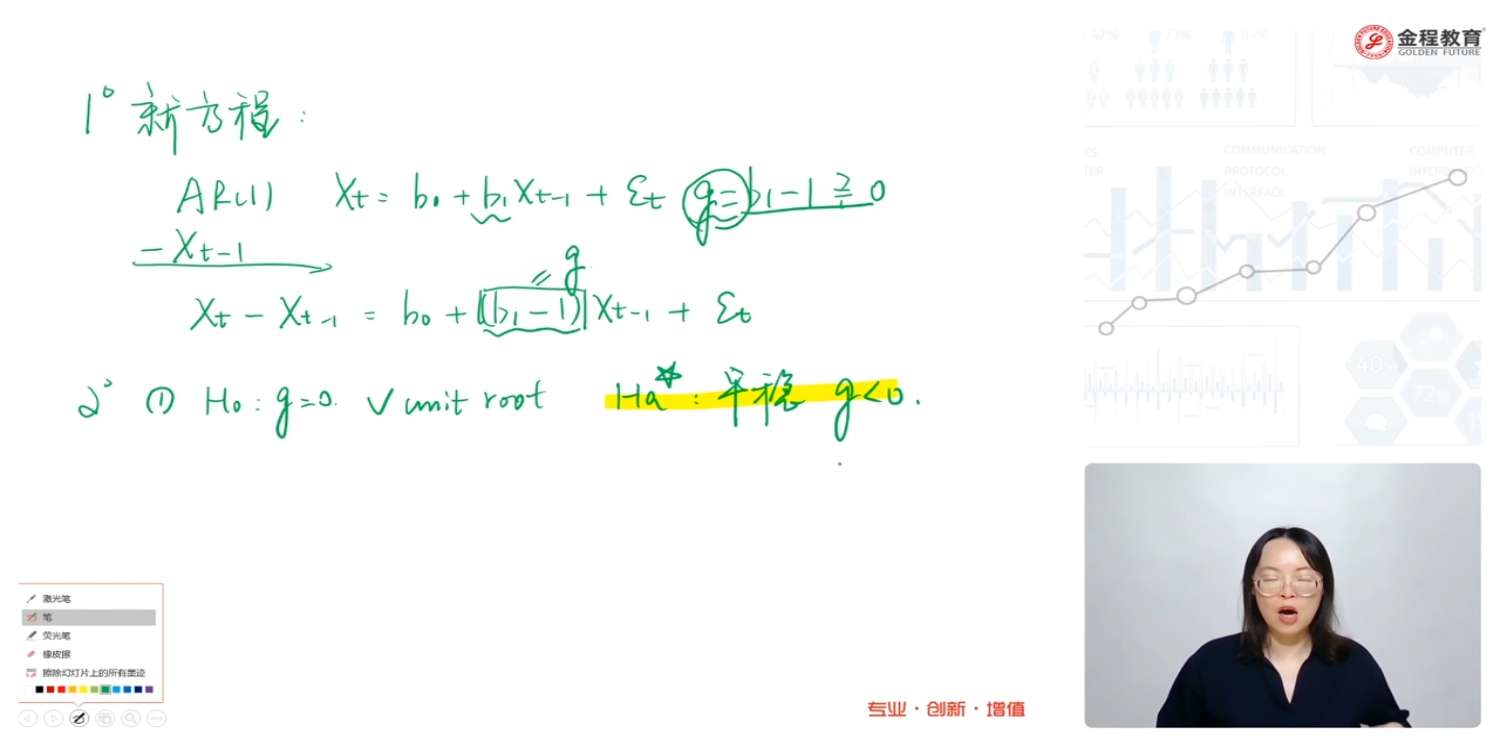 金程教育
GOLDEN FUTURE
1° 新方程:
AR(1) Xt = b0 + b1Xt-1 + εt g = b1-1 ≟ 0
-Xt-1
= g
Xt - Xt-1 = b0 + (b1-1)Xt-1 + εt
2° ① H0: g=0. √ unit root Ha*: 平稳 g<0.
COMMUNICATION
PROTOCOL
INTERFACE
COMPUTER
激光笔
笔
荧光笔
橡皮擦
擦除幻灯片上的所有墨迹
专业·创新·增值